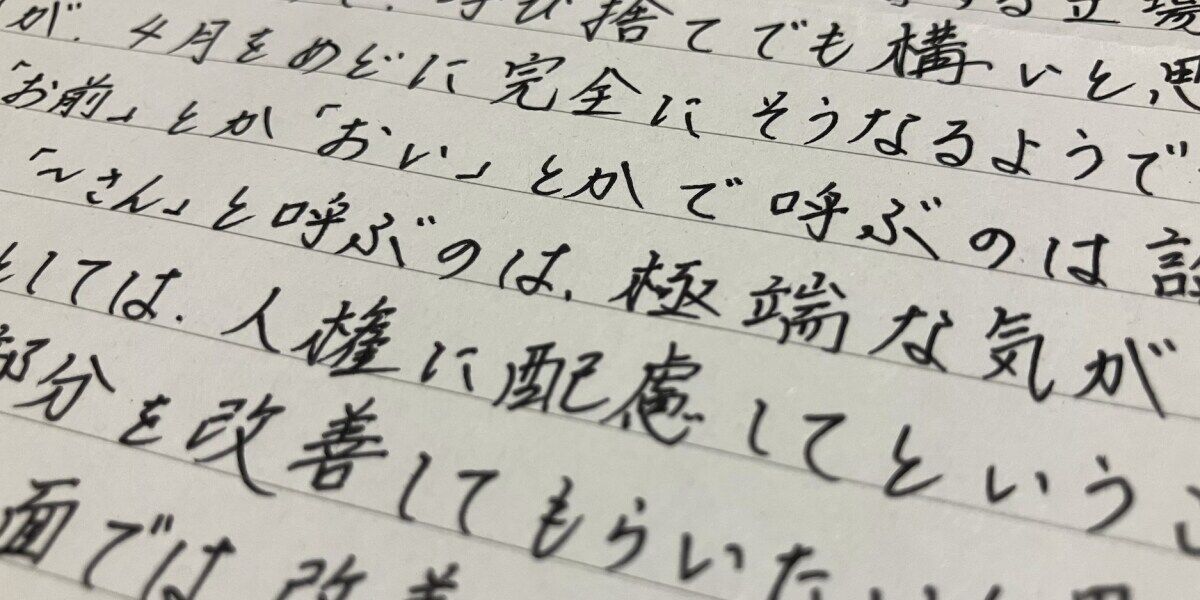 呼び捨てでも構いと思
が、4月をめどに完全にそうなるようで
「お前」とか「おい」とかで呼ぶのは
「~さん」と呼ぶのは、極端な気が
としては、人権に配慮してという
部分を改善してもらいたい
面では改善